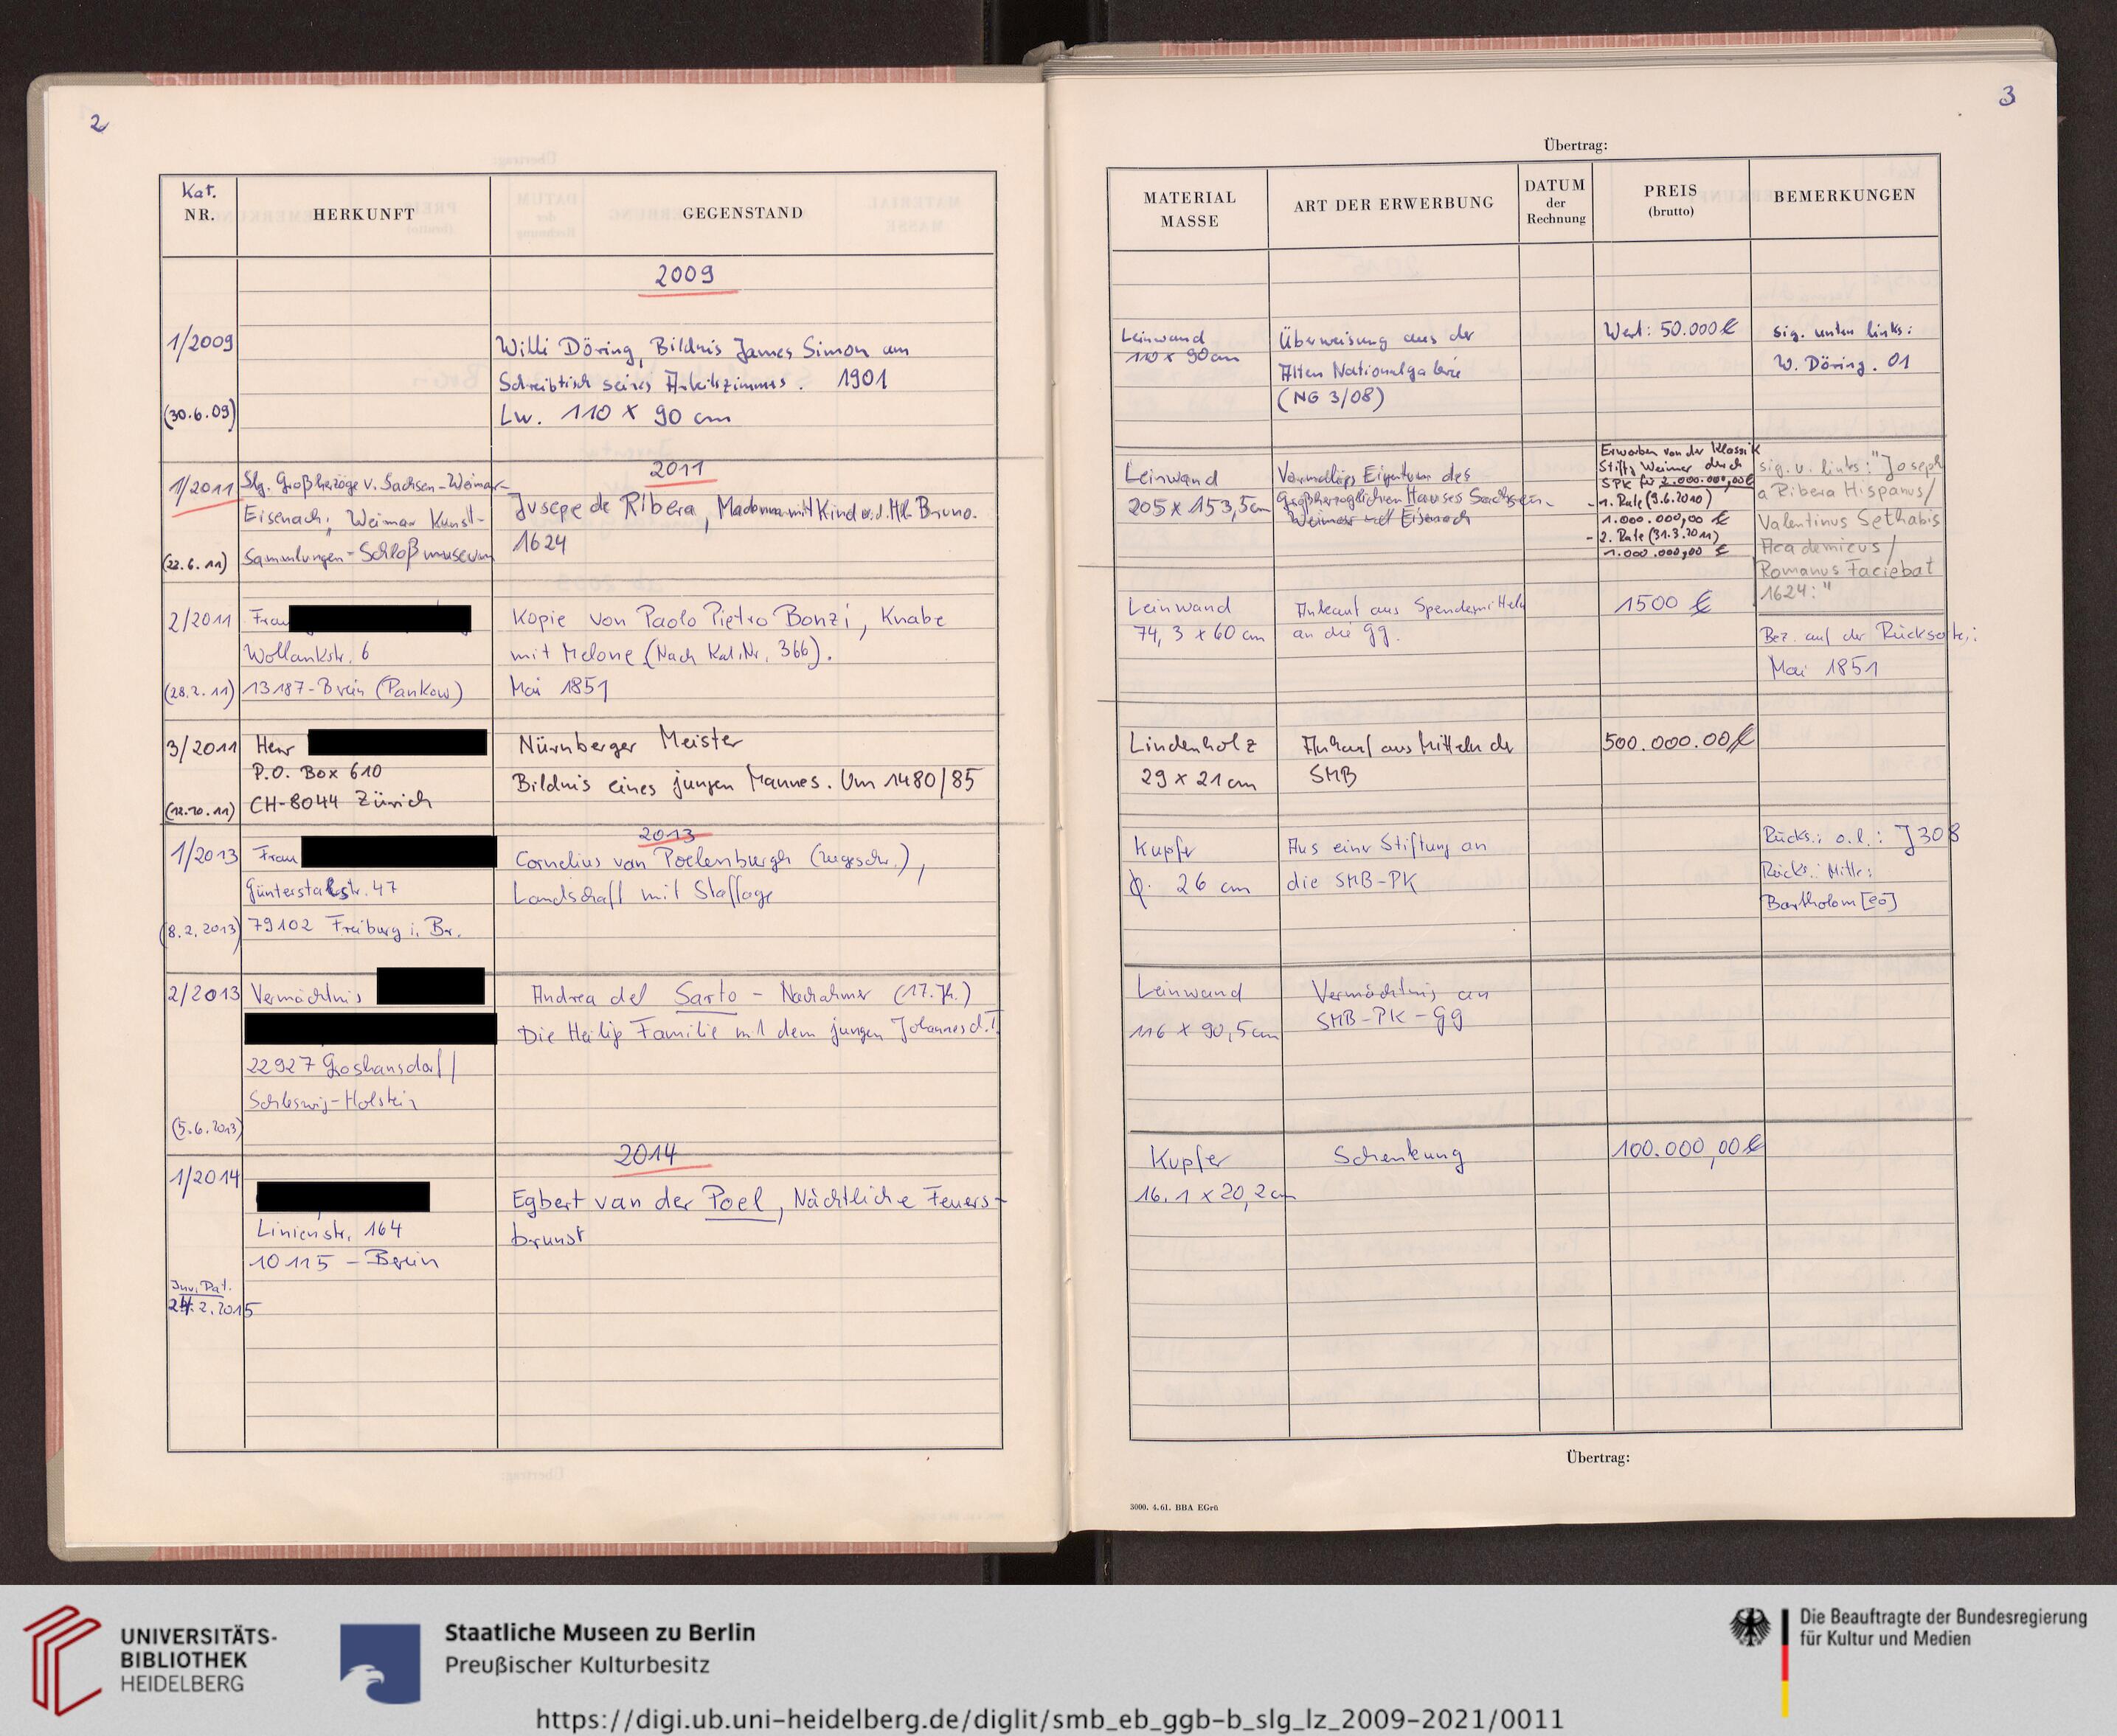 2
Kat.
NR.
HERKUNFT
GEGENSTAND
2009
1/2009
Willi Döring, Bildnis James Simon am
Schreibtisch seines Arbeitszimmers. 1901
(30.6.09)
Lw. 110 x 90 cm
2011
1/2011
Slg. Großherzöge v. Sachsen-Weimar-
Eisenach; Weimar Kunst-
Sammlungen-Schloßmuseum
(22.6.11)
Jusepe de Ribera, Madonna mit Kind u. d. Hl. Bruno.
1624
2/2011
Frau
Wollankstr. 6
13187-Berlin (Pankow)
(28.2.11)
Kopie von Paolo Pietro Bonzi, Knabe
mit Melone (Nach Kat. Nr. 366).
Mai 1851
3/2011
Herr
P.O. Box 610
CH-8044 Zürich
(12.10.11)
Nürnberger Meister
Bildnis eines jungen Mannes. Um 1480/85
2013
1/2013
Frau
Günterstalstr. 47
79102 Freiburg i. Br.
(8.2.2013)
Cornelius van Poelenburgh (zugeschr.),
Landschaft mit Staffage
2/2013
Vermächtnis
22927 Groshansdorf/
Schleswig-Holstein
(5.6.2013)
Andrea del Sarto - Nachahmer (17. Jh.)
Die Heilige Familie mit dem jungen Johannes d. T.
2014
1/2014
Linienstr. 164
10115 - Berlin
Inv. Dat.
24.2.2015
Egbert van der Poel, Nächtliche Feuers-
brunst
3
Übertrag:
MATERIAL
MASSE
ART DER ERWERBUNG
DATUM
der
Rechnung
PREIS
(brutto)
BEMERKUNGEN
Leinwand
110 x 90 cm
Überweisung aus der
Alten Nationalgalerie
(NG 3/08)
Wert: 50.000 €
sig. unten links:
W. Döring. 01
Leinwand
205 x 153,5 cm
Vormaliges Eigentum des
Großherzoglichen Hauses Sachsen-
Weimar und Eisenach
Erworben von der Klassik
Stiftg Weimar durch
SPK für 2.000.000,00 €
- 1. Rate (9.6.2010)
1.000.000,00 €
- 2. Rate (31.3.2011)
1.000.000,00 €
sig. u. links: "Joseph
a Ribera Hispanus/
Valentinus Sethabis
Academicus/
Romanus Faciebat
1624:"
Leinwand
74,3 x 60 cm
Ankauf aus Spendenmitteln
an die gg.
1500 €
Bez. auf der Rückseite:
Mai 1851
Lindenholz
29 x 21 cm
Ankauf aus Mitteln der
SMB
500.000.00 €
Kupfer
φ. 26 cm
Aus einer Stiftung an
die SMB-PK
Rücks.: o.l.: J308
Rücks.: Mitte:
Bartholom[eo]
Leinwand
116 x 90,5 cm
Vermächtnis an
SMB-PK-gg
Kupfer
16.1 x 20,2 cm
Schenkung
100.000,00 €
Übertrag:
3000. 4.61. BBA EGrü
UNIVERSITÄTS-
BIBLIOTHEK
HEIDELBERG
Staatliche Museen zu Berlin
Preußischer Kulturbesitz
Die Beauftragte der Bundesregierung
für Kultur und Medien
https://digi.ub.uni-heidelberg.de/diglit/smb_eb_ggb-b_slg_lz_2009-2021/0011